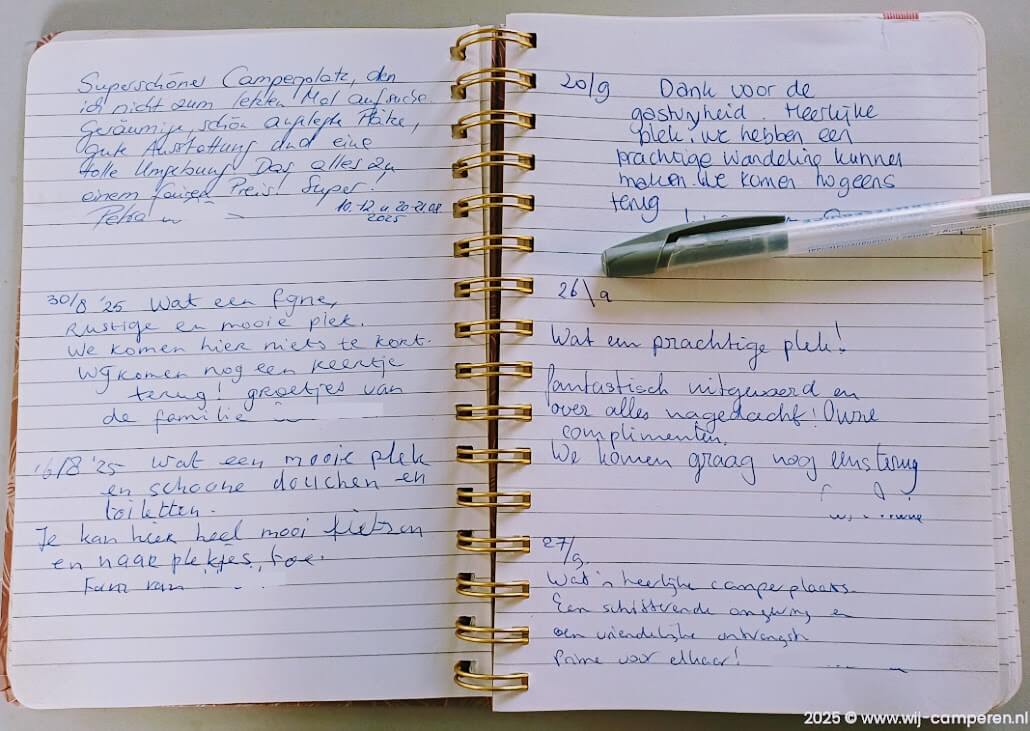 Superschöner Camperplatz, den
ich nicht zum letzten Mal aufsuche.
Geräumige, schön angelegte Plätze,
gute Ausstattung und eine
tolle Umgebung. Das alles zu
einem fairen Preis! Super!
Petra
10.-12. u. 20.-21.08
2025
30/8 '25 Wat een fijne,
rustige en mooie plek.
We komen hier niets te kort.
Wij komen nog een keertje
terug! groetjes van
de familie
16/8 '25 Wat een mooie plek
en schoone douchen en
toiletten.
Je kan hier heel mooi fietsen
en naar plekjes toe.
Fam van
20/9 Dank voor de
gastvrijheid. Heerlijke
plek. We hebben een
prachtige wandeling kunnen
maken. We komen nogeens
terug
26\9
Wat een prachtige plek!
Fantastisch uitgevoerd en
over alles nagedacht! Onze
complimenten.
We komen graag nog eens terug
27/9.
Wat 'n heerlijke camperplaats.
Een schitterende omgeving en
een vriendelijke ontvangst
Prima voor elkaar!
2025 © www.wij-camperen.nl